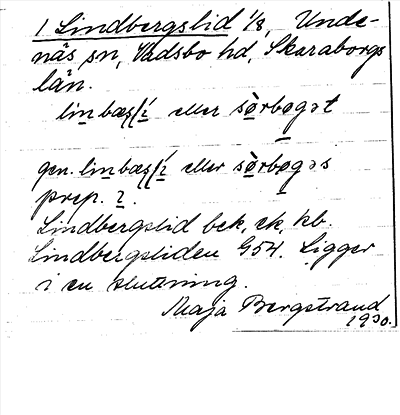 1 Lindbergslid 1/8, Unde-
näs sn, Vadsbo hd, Skaraborgs
län.
eller
gen. eller
prep. i.
Lindbergslid bek, ek, kb.
Lindbergsliden G54. Ligger
i en sluttning.
Maja Bergstrand
1930.